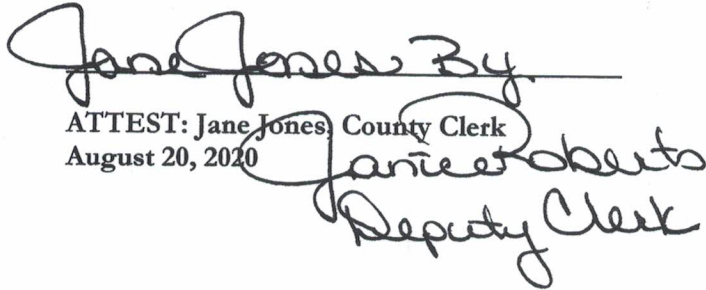 Jane Jones By
ATTEST: Jane Jones, County Clerk
August 20, 2020
Janice Roberts
Deputy Clerk